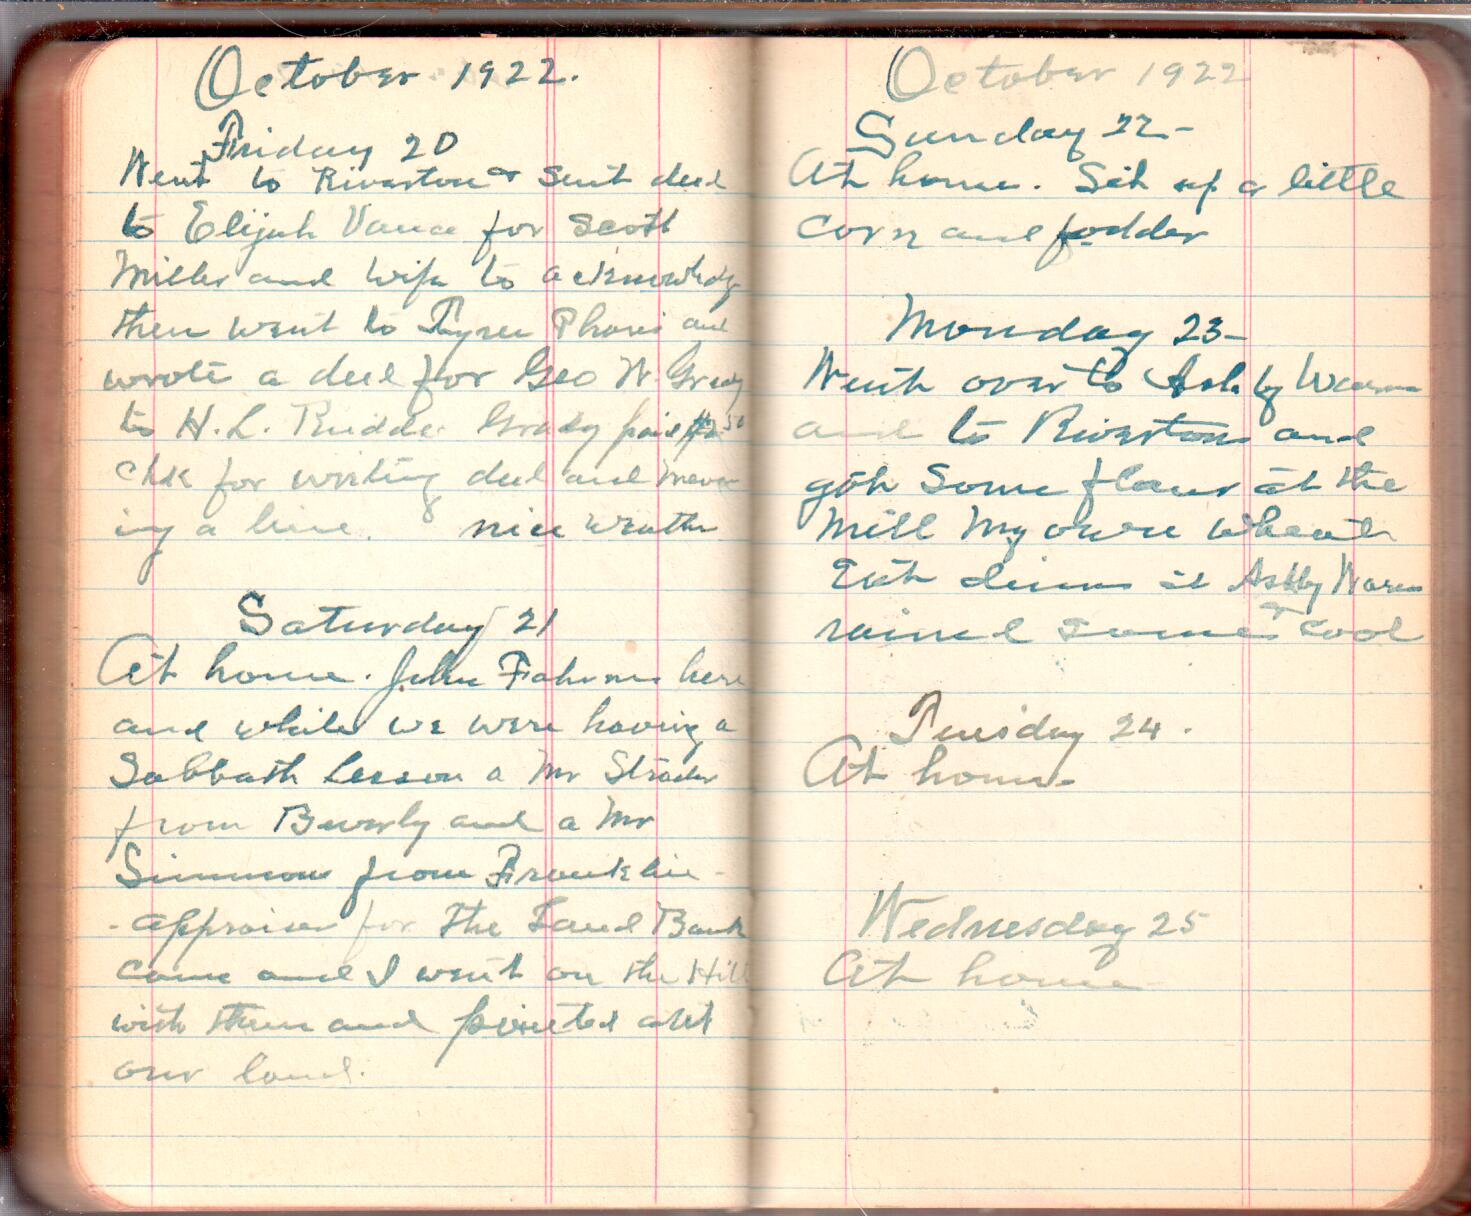 October 1922.
Friday 20
Went to Riverton & sent deed
to Elijah Vance for Scott
Miller and wife to acknowledg
then went to Tyree Phares and
wrote a deed for Geo W. Grady
to H. L. Grady paid
chk for writing deed and
ing a line. nice weather
Saturday 21
At home. John here
and while we were having a
Sabbath Lesson a Mr Strader
from Beverly and a Mr
Simmons from Franklin -
- appraiser for the Land Bank
came and I went on the Hill
with them and pointed out
our land.
October 1922
Sunday 22-
At home. Set up a little
corn and fodder
Monday 23-
Went over to Ashby
and to Riverton and
got some flour at the
mill My owen wheat
Eat at Ashby
rained some & cool
Tuesday 24.
At home
Wednesday 25
At home